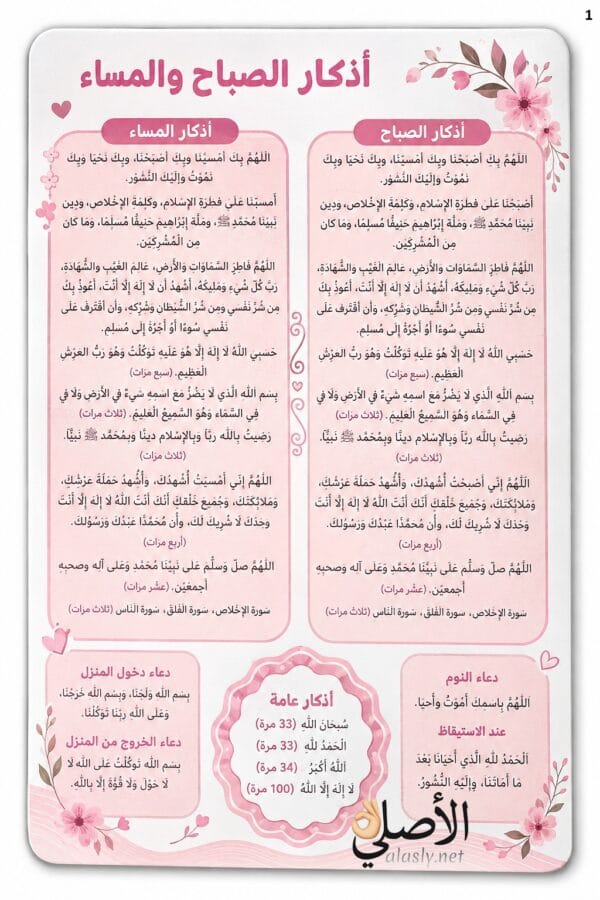 1
أذكار الصباح والمساء
أذكار الصباح
اللَّهُمَّ بِكَ أَصْبَحْنَا وبِكَ أَمْسَيْنَا، وبِكَ نَحْيَا وبِكَ
نَمُوْتُ وإلَيْكَ النُّشُوْر.
أَصْبَحْنَا عَلَىٰ فطرَةِ الإسْلَام، وكَلِمَةِ الإخْلَاص، ودِين
نَبِيِّنَا مُحَمَّدٍ ﷺ، وَملَّة إبْرَاهِيمَ حَنِيفًا مُسلِمًا، وَمَا كان
مِن الْمُشْرِكِيْن.
اللَّهُمَّ فَاطِرَ السَّمَاوَات وَالأَرضِ، عَالِمَ الغَيْبِ والشَّهَادَةِ،
رَبَّ كُلِّ شَيْءٍ وَمَلِيكَهُ، أَشْهَدُ أَن لَا إلَهَ إلَّا أَنتَ، أَعُوذُ بِكَ
مِن شَرِّ نَفْسي ومِن شَرِّ الشَّيطَان وَشَرْكِه، وَأَن أَقْتَرفَ عَلَى
نَفْسي سُوءًا أوْ أَجُرَّهُ إلَى مُسلِم.
حَسْبِيَ اللهُ لَا إلَهَ إلَّا هُوَ عَلَيهِ تَوَكَّلْتُ وَهُوَ رَبُّ العَرْشِ
العَظِيمِ. (سبع مرات)
بِسْمِ اَللهِ الَّذي لَا يَضُرُّ مَعَ اسمِهِ شَيءٌ في الأَرْضِ وَلَا في
فِي السَّمَاءِ وَهُوَ السَّمِيعُ العَلِيمَ. (ثلاث مرات)
رَضِيتُ بِالله ربًّا وَبِالإسْلَام دينًا وبِمُحَمَّدٍ ﷺ نَبيًّا.
(ثلاث مرات)
اللَّهُمَّ إنِّي أَصبَحتُ أُشْهِدُكَ، وَأُشْهِدُ حَمَلَةَ عَرْشِكَ،
وَمَلَائِكَتَكَ، وَجَمِيعَ خَلْقِكَ أَنَّكَ أَنْتَ اللهُ لَا إلَهَ إلَّا أَنْتَ
وَحْدَكَ لَا شَرِيكَ لَكَ، وَأَن مُحَمَّدًا عَبْدُكَ وَرَسُوْلكَ.
(أربع مرات)
اللَّهُمَّ صلِّ وَسَلِّم عَلَى نَبِيِّنَا مُحَمَّدٍ وَعَلَى آله وَصحبِهِ
أَجمعَيْن. (عشر مرات)
سُورة الإخْلاص، سَورة الفَلَقَ، سُورة النَّاس (ثلاث مرات)
أذكار المساء
اللَّهُمَّ بِكَ أَمْسَيْنَا وبِكَ أَصْبَحْنَا، وبِكَ نَحْيَا وبِكَ
نَمُوْتُ وإلَيْكَ النُّشُوْر.
أَمسيْنَا عَلَىٰ فطرَةِ الإسْلَام، وكَلِمَةِ الإخْلَاص، ودِين
نَبِيِّنَا مُحَمَّدٍ ﷺ، وَملَّة إبْرَاهِيمَ حَنِيفًا مُسلِمًا، وَمَا كان
مِن الْمُشْرِكِيْن.
اللَّهُمَّ فَاطِرَ السَّمَاوَات وَالأَرضِ، عَالِمَ الغَيْبِ والشَّهَادَةِ،
رَبَّ كُلِّ شَيْءٍ وَمَلِيكَهُ، أَشْهَدُ أَن لَا إلَهَ إلَّا أَنتَ، أَعُوذُ بِكَ
مِن شَرِّ نَفْسي ومِن شَرِّ الشَّيطَان وَشَرْكِه، وَأَن أَقْتَرفَ عَلَى
نَفْسي سُوءًا أوْ أَجُرَّهُ إلَى مُسلِم.
حَسْبِيَ اللهُ لَا إلَهَ إلَّا هُوَ عَلَيهِ تَوَكَّلْتُ وَهُوَ رَبُّ العَرْشِ
العَظِيمِ. (سبع مرات)
بِسْمِ اَللهِ الَّذي لَا يَضُرُّ مَعَ اسمِهِ شَيءٌ في الأَرْضِ وَلَا في
فِي السَّمَاءِ وَهُوَ السَّمِيعُ العَلِيمَ. (ثلاث مرات)
رَضِيتُ بِالله ربًّا وَبِالإسْلَام دينًا وبِمُحَمَّدٍ ﷺ نَبيًّا.
(ثلاث مرات)
اللَّهُمَّ إنِّي أَمْسَيْتُ أُشْهِدُكَ، وَأُشْهِدُ حَمَلَةَ عَرْشِكَ،
وَمَلَائِكَتَكَ، وَجَمِيعَ خَلْقِكَ أَنَّكَ أَنْتَ اللهُ لَا إلَهَ إلَّا أَنْتَ
وَحْدَكَ لَا شَرِيكَ لَكَ، وَأَن مُحَمَّدًا عَبْدُكَ وَرَسُوْلكَ.
(أربع مرات)
اللَّهُمَّ صلِّ وَسَلِّم عَلَى نَبِيِّنَا مُحَمَّدٍ وَعَلَى آله وَصحبِهِ
أَجمعَيْن. (عشر مرات)
سُورة الإخْلاص، سَورة الفَلَقَ، سُورة النَّاس (ثلاث مرات)
دعاء النوم
اَللَّهُمَّ بِاسمِكَ أَمُوْتُ وَأَحيَا.
عند الاستيقاظ
اَلْحَمدُ للهِ الَّذي أَحيَانَا بَعْدَ
مَا أَمَاتَنَا، وإلَيْهِ النُّشُورُ.
أذكار عامة
سُبحَانَ اللَّهِ (33 مرة)
الْحَمدُ للَّهِ (33 مرة)
اَللهُ أَكْبَرُ (34 مرة)
لَا إلَهَ إلَّا اللَّهُ (100 مرة)
دعاء دخول المنزل
بِسْمِ اللهِ وَلَجْنَا، وَبِسْمِ اللهِ خَرَجْنَا،
وَعَلَى اللهِ رَبِّنَا تَوَكَّلْنَا.
دعاء الخروج من المنزل
بِسْمِ اللهِ تَوَكَّلْتُ عَلَى اللهِ لَا
لَا حَوْلَ وَلَا قُوَّةَ إلَّا بِاللهِ.
الأصلي
alasly.net